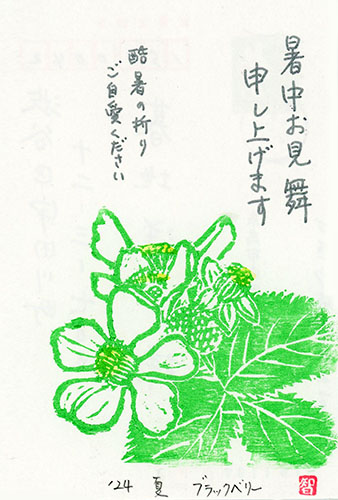 暑中お見舞
申し上げます
酷暑の折り
ご自愛ください
'24 夏 ブラックベリー
智